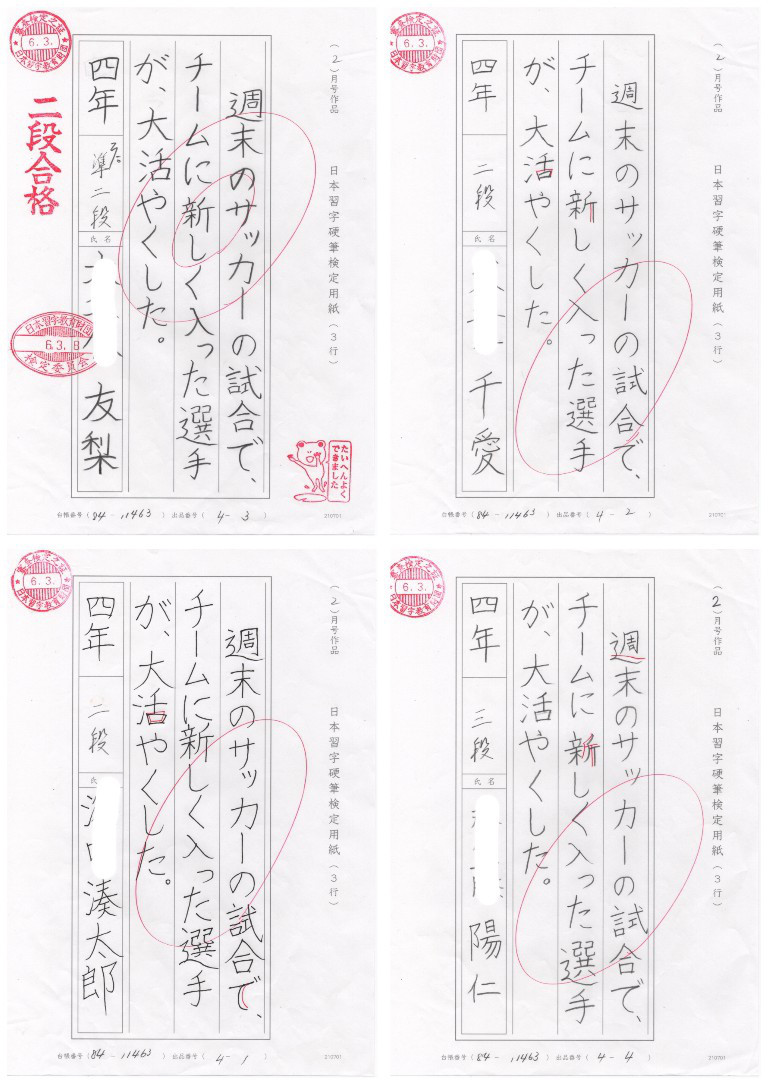 審査検定之証
6.3.
日本習字教育財団
二段合格
日本習字教育財団
6.3.8
検定委員会
(2)月号作品
日本習字硬筆検定用紙(3行)
週末のサッカーの試合で、
チームに新しく入った選手
が、大活やくした。
四年
準二段
氏名
友梨
たいへんよく
できました
台帳番号(84-11463) 出品番号(4-3)
210701
審査検定之証
6.3.
日本習字教育財団
(2)月号作品
日本習字硬筆検定用紙(3行)
週末のサッカーの試合で、
チームに新しく入った選手
が、大活やくした。
四年
二段
氏名
千愛
台帳番号(84-11463) 出品番号(4-2)
210701
審査検定之証
6.3.
日本習字教育財団
(2)月号作品
日本習字硬筆検定用紙(3行)
週末のサッカーの試合で、
チームに新しく入った選手
が、大活やくした。
四年
二段
氏
湊太郎
台帳番号(84-11463) 出品番号(4-1)
210701
審査検定之証
6.3.
日本習字教育財団
(2)月号作品
日本習字硬筆検定用紙(3行)
週末のサッカーの試合で、
チームに新しく入った選手
が、大活やくした。
四年
三段
氏名
陽仁
台帳番号(84-11463) 出品番号(4-4)
210701